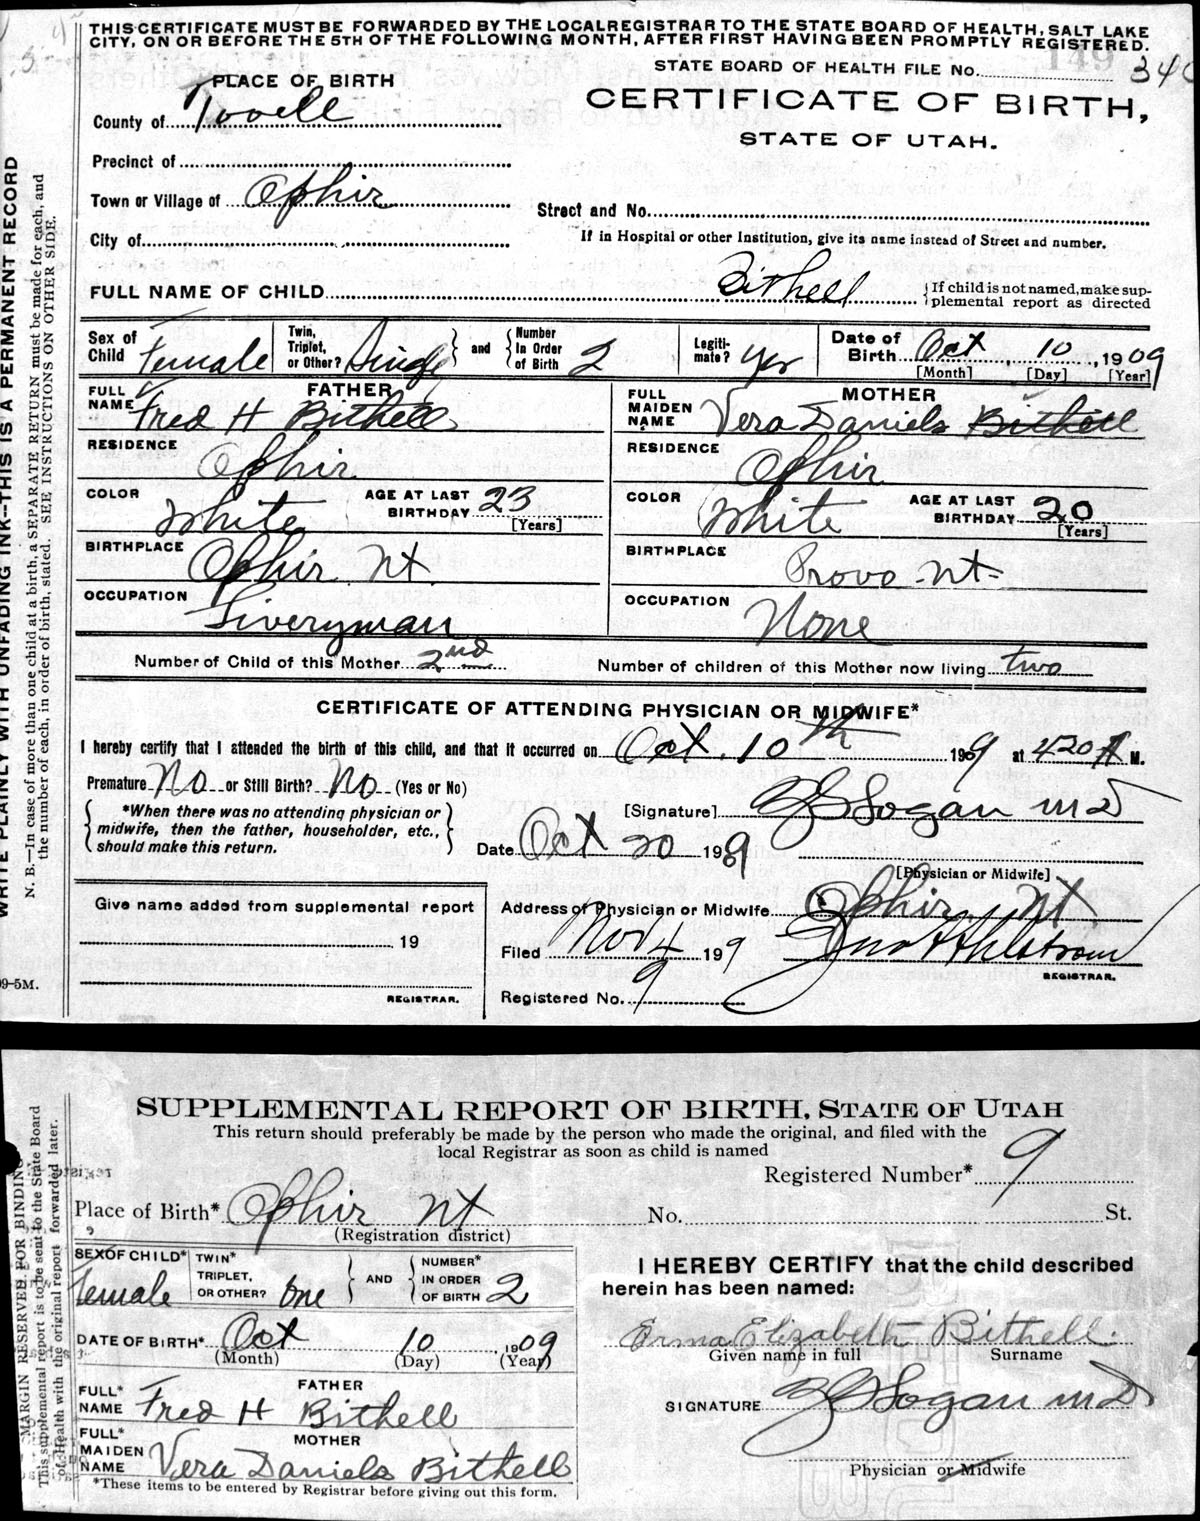 THIS CERTIFICATE MUST BE FORWARDED BY THE LOCAL REGISTRAR TO THE STATE BOARD OF HEALTH, SALT LAKE
CITY, ON OR BEFORE THE 5TH OF THE FOLLOWING MONTH, AFTER FIRST HAVING BEEN PROMPTLY REGISTERED.
STATE BOARD OF HEALTH FILE No. 340
PLACE OF BIRTH
CERTIFICATE OF BIRTH,
STATE OF UTAH.
County of Tooell
Precinct of
Town or Village of Ophir
Street and No.
City of
If in Hospital or other Institution, give its name instead of Street and number.
FULL NAME OF CHILD Bithell { If child is not named, make sup-
plemental report as directed
Sex of Child Female Twin, Triplet, or Other? Single and Number In Order of Birth 2 Legiti-mate? Yes Date of Birth Oct 10, 1909
[Month] [Day] [Year]
FATHER MOTHER
FULL NAME Fred H Bithell FULL MAIDEN NAME Vera Daniels Bithell
RESIDENCE Ophir RESIDENCE Ophir
COLOR White AGE AT LAST BIRTHDAY 23 [Years] COLOR White AGE AT LAST BIRTHDAY 20 [Years]
BIRTHPLACE Ophir Ut BIRTHPLACE Provo Ut
OCCUPATION Liveryman OCCUPATION None
Number of Child of this Mother 2nd Number of children of this Mother now living two
CERTIFICATE OF ATTENDING PHYSICIAN OR MIDWIFE*
I hereby certify that I attended the birth of this child, and that it occurred on Oct. 10th 1909 at 420 A M.
Premature No or Still Birth? No (Yes or No)
*When there was no attending physician or
midwife, then the father, householder, etc.,
should make this return.
[Signature] Logan MD
Date Oct 20 1909
[Physician or Midwife]
Give name added from supplemental report
19
REGISTRAR.
Address of Physician or Midwife Ophir Ut
Filed Nov 4 1909 Jno A Ahlstrom
REGISTRAR.
Registered No. 9
WRITE PLAINLY WITH UNFADING INK--THIS IS A PERMANENT RECORD
N. B.—In case of more than one child at a birth, a SEPARATE RETURN must be made for each, and
the number of each, in order of birth, stated. SEE INSTRUCTIONS ON OTHER SIDE.
09-5M.
SUPPLEMENTAL REPORT OF BIRTH, STATE OF UTAH
This return should preferably be made by the person who made the original, and filed with the
local Registrar as soon as child is named
Registered Number* 9
Place of Birth* Ophir Ut No. St.
(Registration district)
SEX OF CHILD* Female TWIN* TRIPLET, OR OTHER? One AND NUMBER* IN ORDER OF BIRTH 2
DATE OF BIRTH* Oct 10 1909
(Month) (Day) (Year)
FATHER
FULL* NAME Fred H Bithell
MOTHER
FULL* MAIDEN NAME Vera Daniels Bithell
*These items to be entered by Registrar before giving out this form.
I HEREBY CERTIFY that the child described
herein has been named:
Erma Elizabeth Bithell.
Given name in full Surname
SIGNATURE Logan MD
Physician or Midwife
MARGIN RESERVED FOR BINDING
This supplemental report is to be sent to the State Board
of Health with the original report forwarded later.